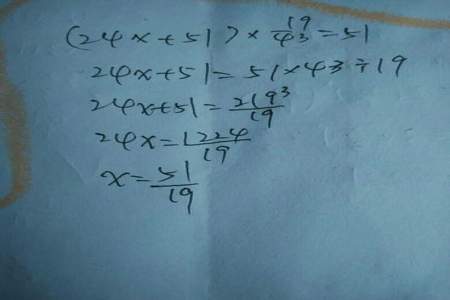 (24x+51)×19/43=51
24x+51=51×43÷19
24x+51=2193/19
24x=1224/19
x=51/19